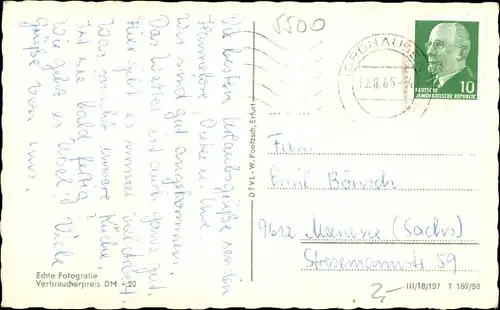 5500
Die besten Urlaubsgrüße senden
Hannelore, Dieter u. Uwe.
Wir sind gut angekommen.
Das Wetter ist auch ganz gut.
Hier geht es immer
Was macht unsere Küche,
ist sie bald fertig?
Wie geht es Viele
Grüße von uns.
Echte Fotografie
Verbraucherpreis DM -,20
DTVL - W. Poetzsch, Erfurt
NORDHAUSEN
DEUTSCHE
DEMOKRATISCHE REPUBLIK
10
Fam.
Emil Bönsch
9612 Meerane (Sachs)
Stresemannstr 59
2,-
III/18/197 T 169/59